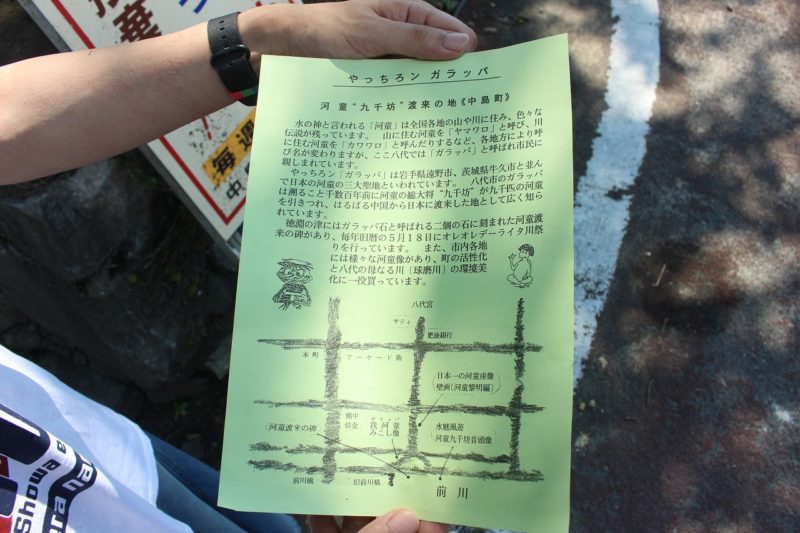 毎週
やっちろン ガラッパ
河童“九千坊”渡来の地《中島町》
水の神と言われる「河童」は全国各地の山や川に住み、色々な
伝説が残っています。 山に住む河童を「ヤマワロ」と呼び、川
に住む河童を「カワワロ」と呼んだりするなど、各地方により呼
び名が変わりますが、ここ八代では「ガラッパ」と呼ばれ市民に
親しまれています。
やっちろン「ガラッパ」は岩手県遠野市、茨城県牛久市と並ん
で日本の河童の三大聖地といわれています。 八代市のガラッパ
は溯ること千数百年前に河童の総大将“九千坊”が九千匹の河童
を引きつれ、はるばる中国から日本に渡来した地として広く知ら
れています。
徳淵の津にはガラッパ石と呼ばれる二個の石に刻まれた河童渡
来の碑があり、毎年旧暦の5月18日にオレオレデーライタ川祭
りを行っています。 また、市内各地
には様々な河童像があり、町の活性化
と八代の母なる川〔球磨川〕の環境美
化に一役買っています。
八代宮
サティ
肥後銀行
本町 アーケード街
日本一の河童座像
壁画〔河童黎明編〕
河童渡来の碑
熊中
信金
ガラッパ
我河童
みこし像
水魅風遊
河童九千坊音頭像
前川橋
旧前川橋
前川
Showa